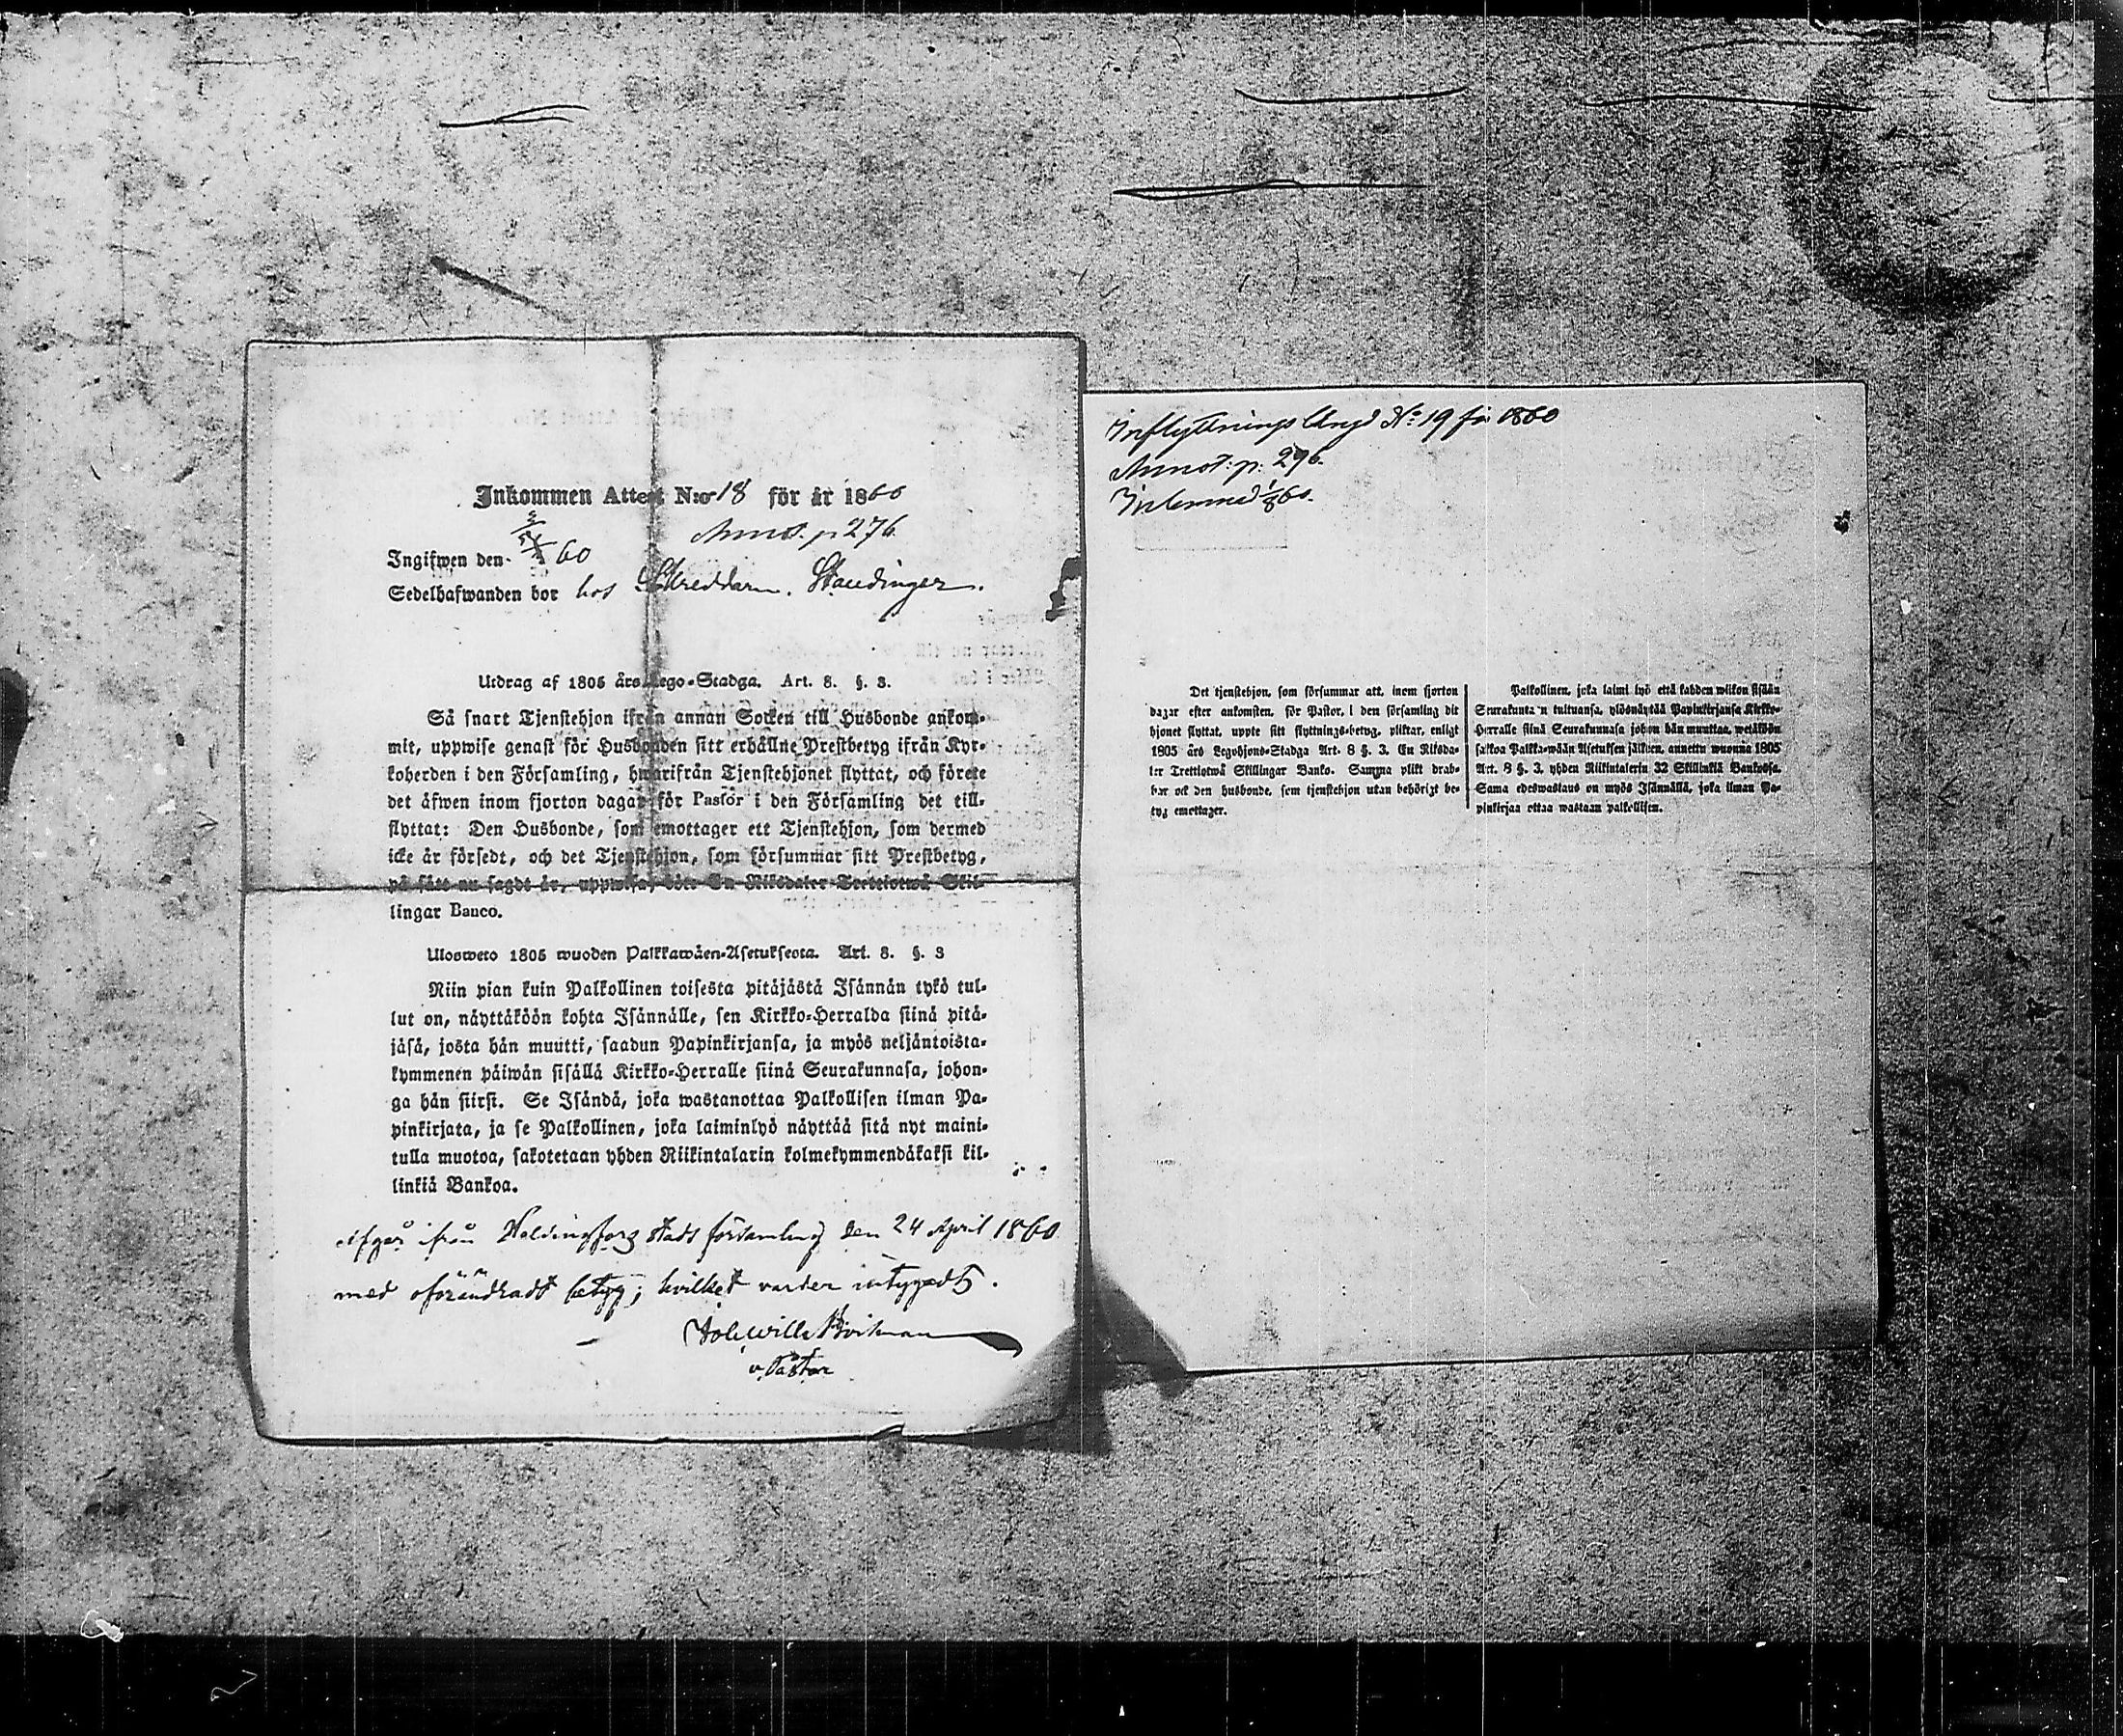 Inkommen Attest N:o 18 för år 1860
Annot. p 276
Ingifwen den 60
Sedelhafwanden bor hos Skreddarn. Staudinger.
Utdrag af 1805 års Lego-Stadga. Art. 8. §. 3.
Så snart Tjenstehjon ifrån annan Socken till Husbonde ankom-
mit, uppwise genast för Husbonden sitt erhållne Prestbetyg ifrån Kyr-
koherden i den Församling, hwarifrån Tjenstehjonet flyttat, och förete
det äfwen inom fjorton dagar för Pastor i den Församling det till-
flyttat: Den Husbonde, som emottager ett Tjenstehjon, som dermed
icke är försedt, och det Tjenstehjon, som försummar sitt Prestbetyg,
på sätt nu sagdt är, uppwisa, böte En Riksdaler Trettiotwå Skil-
lingar Banco.
Ulosweto 1805 wuoden Palkkawäen-Asetuksesta. Art. 8. §. 3
Niin pian kuin Palkollinen toisesta pitäjästä Isännän tykö tul-
lut on, näyttäköön kohta Isännälle, sen Kirkko-Herralda siinä pitä-
jäsä, josta hän muutti, saadun Papinkirjansa, ja myös neljäntoista-
kymmenen päiwän sisällä Kirkko-Herralle siinä Seurakunnasa, johon-
ga hän siirsi. Se Isändä, joka wastanottaa Palkollisen ilman Pa-
pinkirjata, ja se Palkollinen, joka laiminlyö näyttää sitä nyt maini-
tulla muotoa, sakotetaan yhden Riikintalarin kolmekymmendäkaksi kil-
linkiä Bankoa.
Afgår ifrån Helsingfors stads församling den 24 April 1860
med oförändradt betyg; hvilket varder intygadt.
v. Pastor
Inflyttnings längd No: 19 för 1860
Annot: p: 296.
Inlemnad 60.
Det tjenstehjon, som försummar att, inom fjorton
dagar efter ankomsten, för Pastor, i den församling dit
hjonet flyttat, uppte sitt flyttnings-betyg, pliktar, enligt
1805 års Legohjons-Stadga Art. 8 §. 3. En Riksda-
ler Trettiotwå Skillingar Banko. Samma plikt drab-
bar ock den husbonde, som tjenstehjon utan behörigt be-
tyg emottager.
Palkollinen, joka laimi lyö että kahden wiikon sisään
Seurakunta'n tultuansa, ylösnäytää Papinkirjansa Kirkko-
Herralle siinä Seurakunnasa johon hän muuttaa, wetäköön
sakkoa Palkka-wään Asetuksen jälkeen, annettu wuonna 1805
Art. 8 §. 3, yhden Riikintalerin 32 Skillinkiä Bankosa.
Sama edeswastaus on myös Isännällä, joka ilman Pa-
pinkirjaa ottaa wastaan palkollisen.